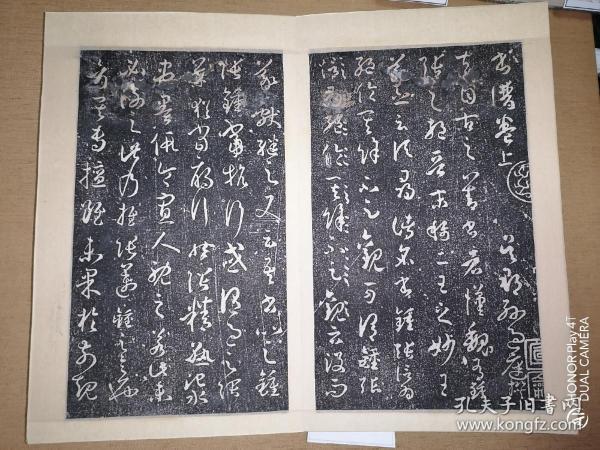 書譜卷上 吳郡孫過庭撰
夫自古之善書者漢魏有鍾
張之絕晉末稱二王之妙王
羲之云頃尋諸名書鍾張信為
絕倫其餘不足觀可謂鍾張
云沒而
羲獻繼之又云吾書比之鍾
張鍾當抗行或謂過之張
草猶當鴈行然張精熟池水
盡墨假令寡人耽之若此未
必謝之此乃推張邁鍾之意也
考其專擅雖未果於前規
HONOR Play4T
DUAL CAMERA
孔夫子旧书网
www.kongfz.com